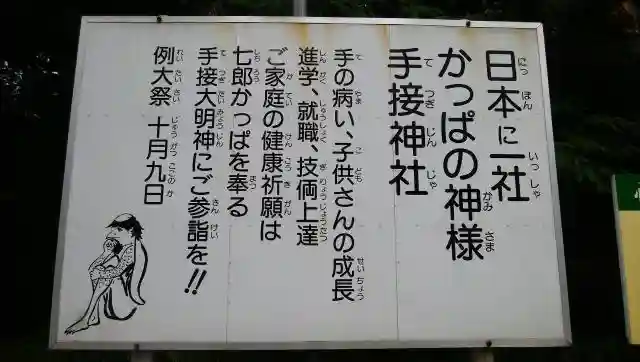 日本に一社
かっぱの神様
手接神社
手の病い、子供さんの成長
進学、就職、技倆上達
ご家庭の健康祈願は
七郎かっぱを奉る
手接大明神にご参詣を!!
例大祭 十月九日